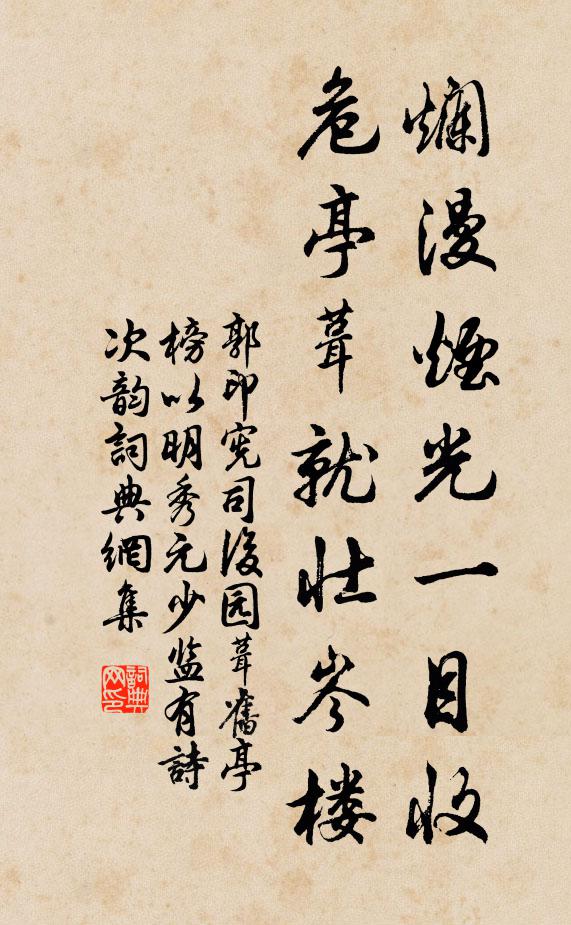 爛漫煙光一目收
危亭葺就壯岑楼
郭印宪司後园葺舊亭
榜以明秀元少监有詩
次韵詞典網集
詞典网印